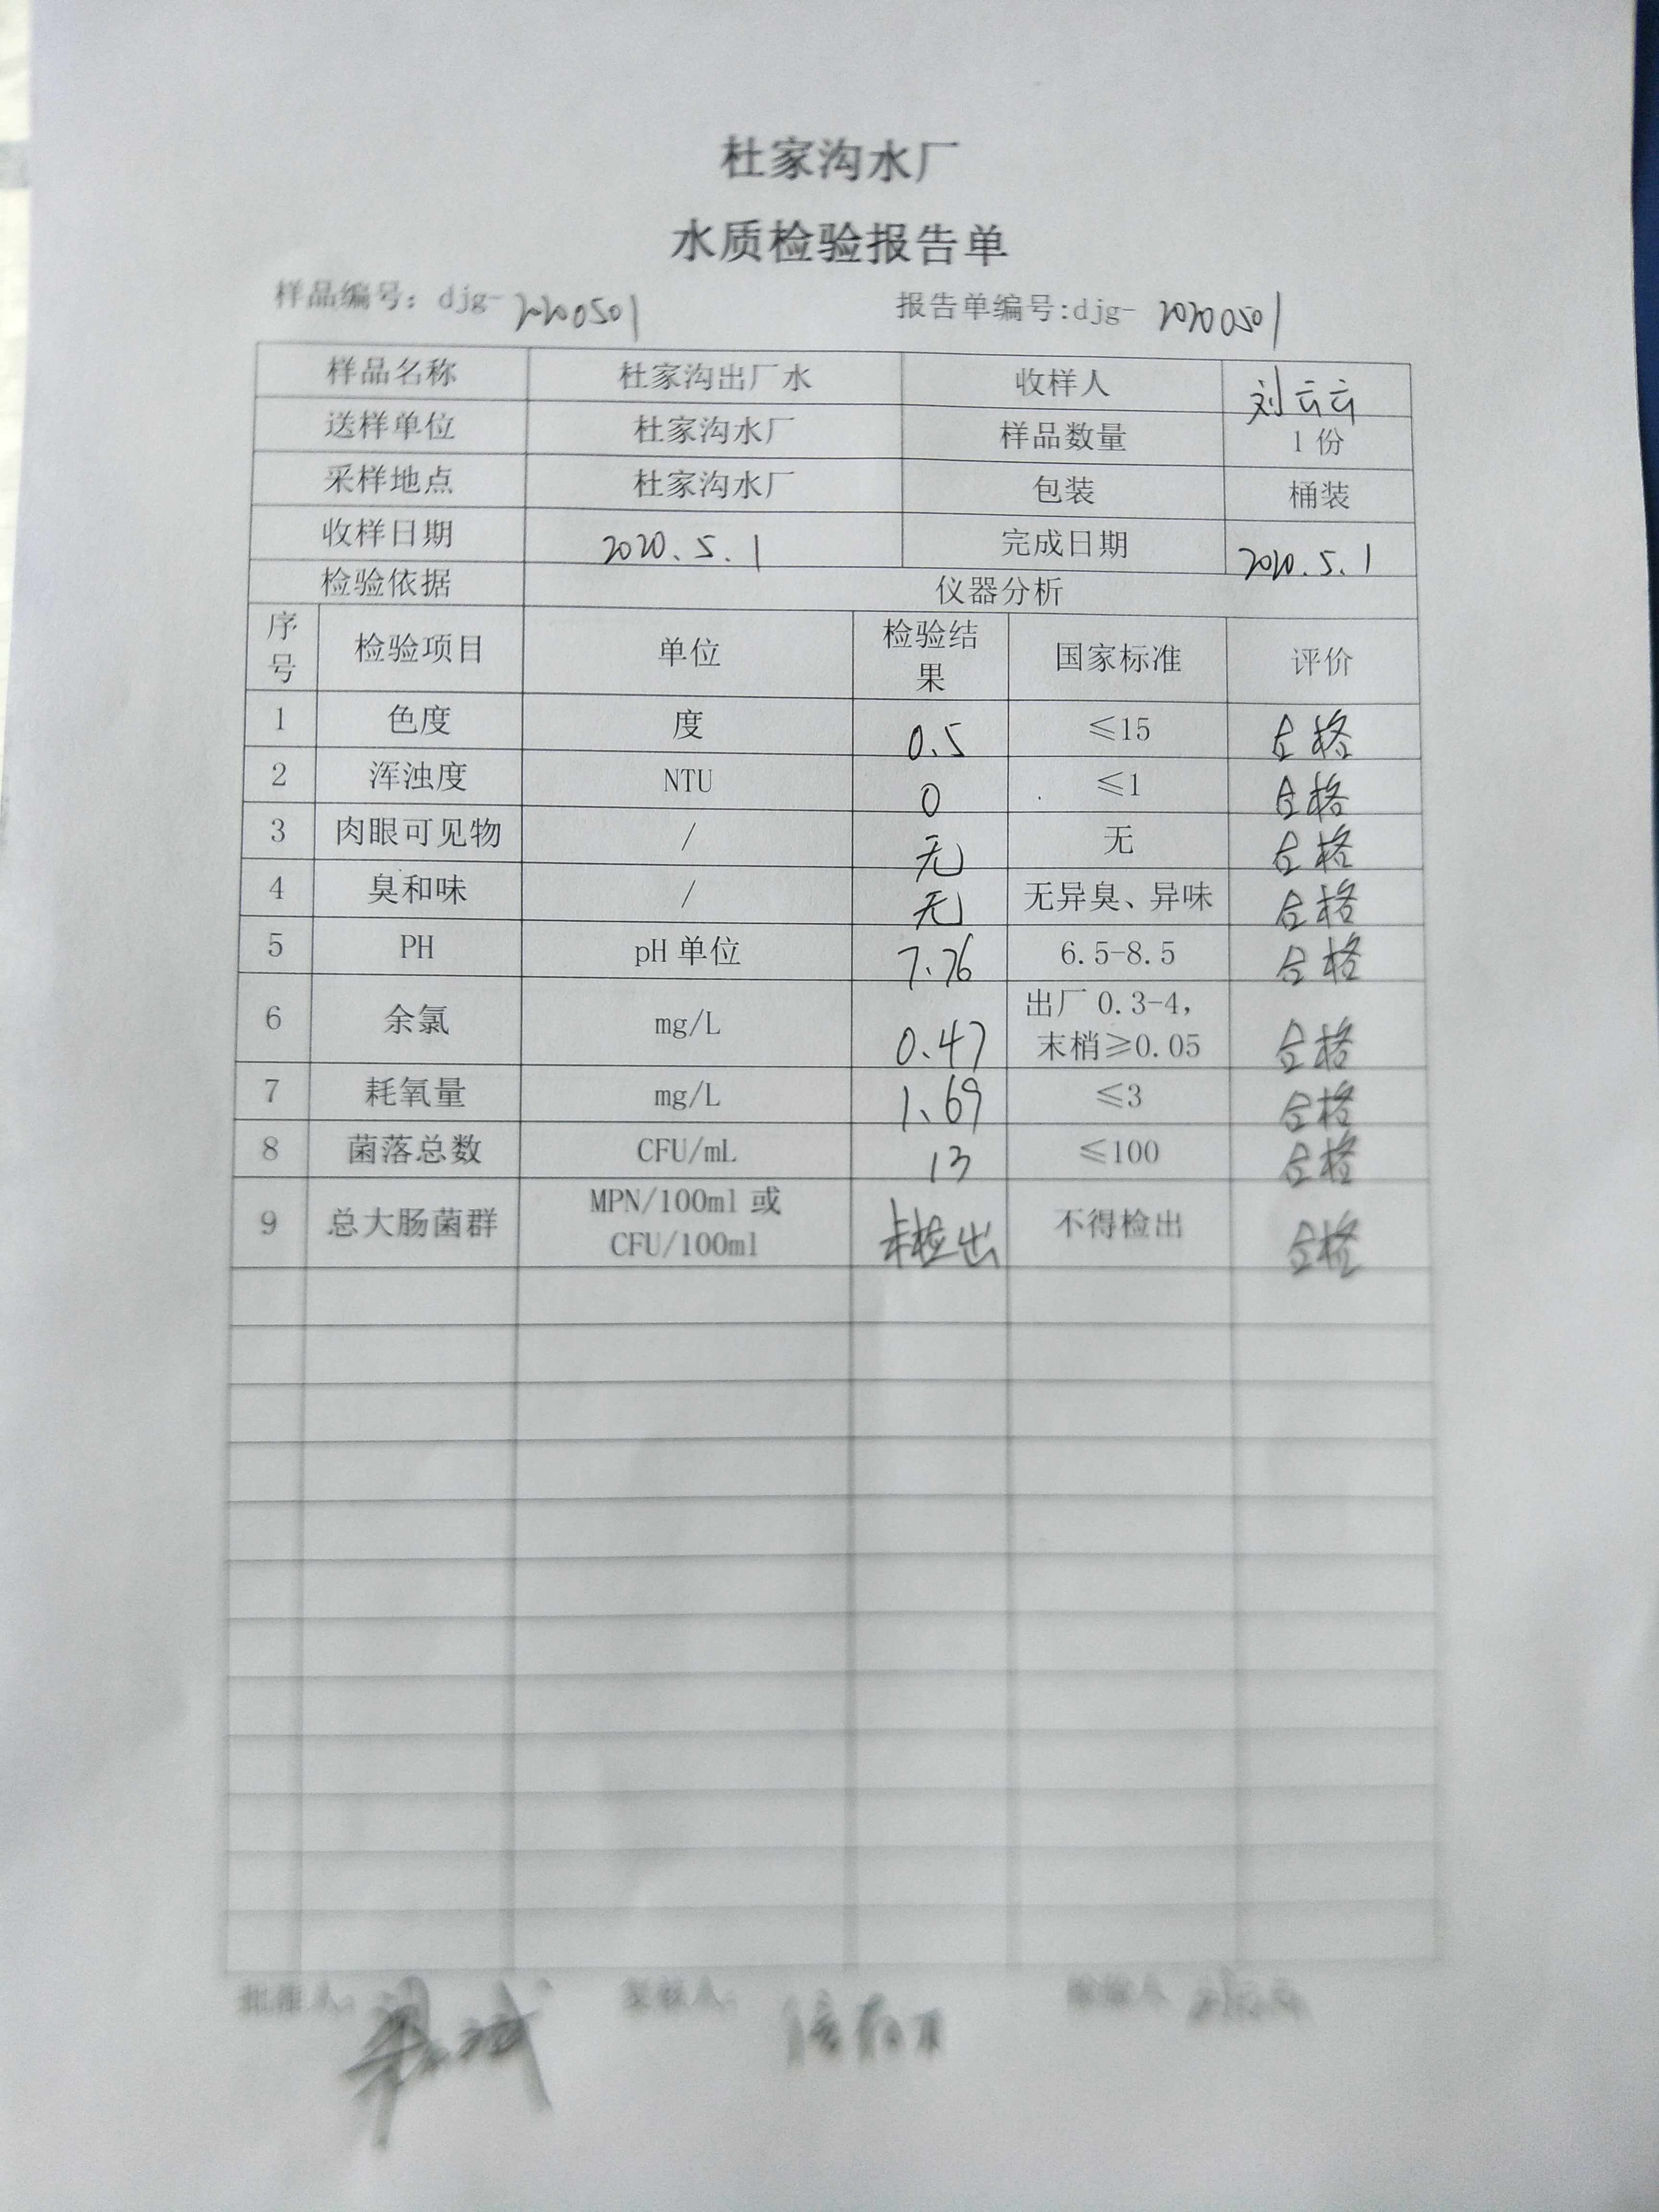 杜家沟水厂
水质检验报告单
样品编号: djg-2200501 报告单编号:djg- 20200501
样品名称 杜家沟出厂水 收样人 刘云云
送样单位 杜家沟水厂 样品数量 1份
采样地点 杜家沟水厂 包装 桶装
收样日期 2020.5.1 完成日期 2020.5.1
检验依据 仪器分析
序号 检验项目 单位 检验结果 国家标准 评价
1 色度 度 0.5 ≤15 合格
2 浑浊度 NTU 0 ≤1 合格
3 肉眼可见物 / 无 无 合格
4 臭和味 / 无 无异臭、异味 合格
5 PH pH 单位 7.76 6.5-8.5 合格
6 余氯 mg/L 0.47 出厂 0.3-4,末梢≥0.05 合格
7 耗氧量 mg/L 1.69 ≤3 合格
8 菌落总数 CFU/mL 13 ≤100 合格
9 总大肠菌群 MPN/100ml 或 CFU/100ml 未检出 不得检出 合格
批准人: